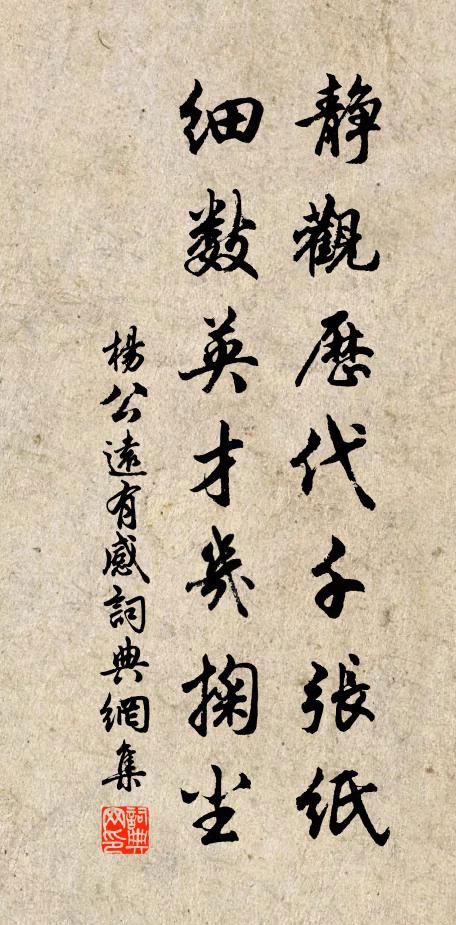 靜觀歷代千張紙
細數英才幾掬尘
楊公遠有感詞典網集
詞典网印